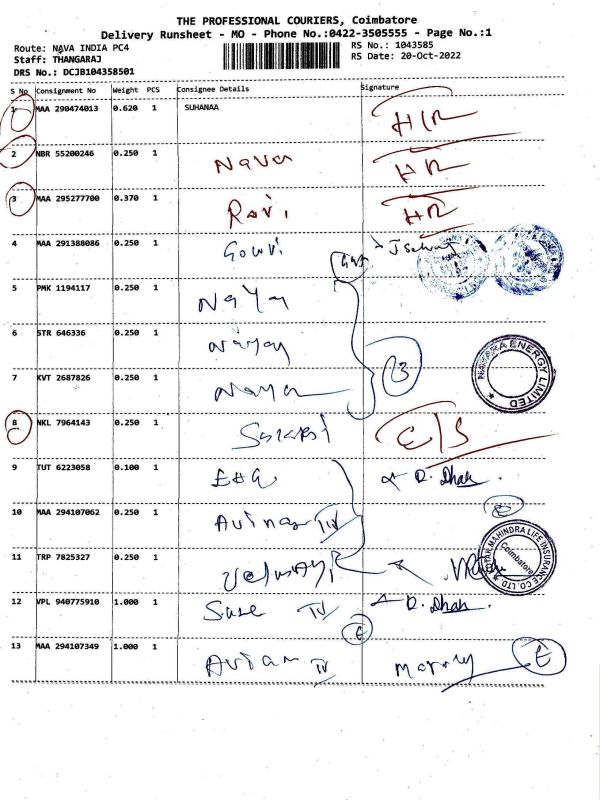 THE PROFESSIONAL COURIERS, Coimbatore
Delivery Runsheet - MO - Phone No.:0422-3505555 - Page No.:1
Route: NAVA INDIA PC4
RS No.: 1043585
Staff: THANGARAJ
RS Date: 20-Oct-2022
DRS No.: DCJB104358501
S No Consignment No Weight PCS Consignee Details Signature
1 MAA 290474013 0.620 1 SUHANAA
2 NBR 55200246 0.250 1 Nava HR
3 MAA 295277700 0.370 1 Ravi HR
4 MAA 291388086 0.250 1 Gowri
5 PMK 1194117 0.250 1 Naya
6 STR 646336 0.250 1 Nayay
7 KVT 2687826 0.250 1 Naya 3
NAYARA ENERGY LIMITED
8 NKL 7964143 0.250 1 E/S
9 TUT 6223058 0.100 1 D. Dhak
10 MAA 294107062 0.250 1 Avinas TV
11 TRP 7825327 0.250 1
KOTAK MAHINDRA LIFE INSURANCE CO. LTD
Coimbatore
12 VPL 940775910 1.000 1 TV D. Dhak
13 MAA 294107349 1.000 1 TV E